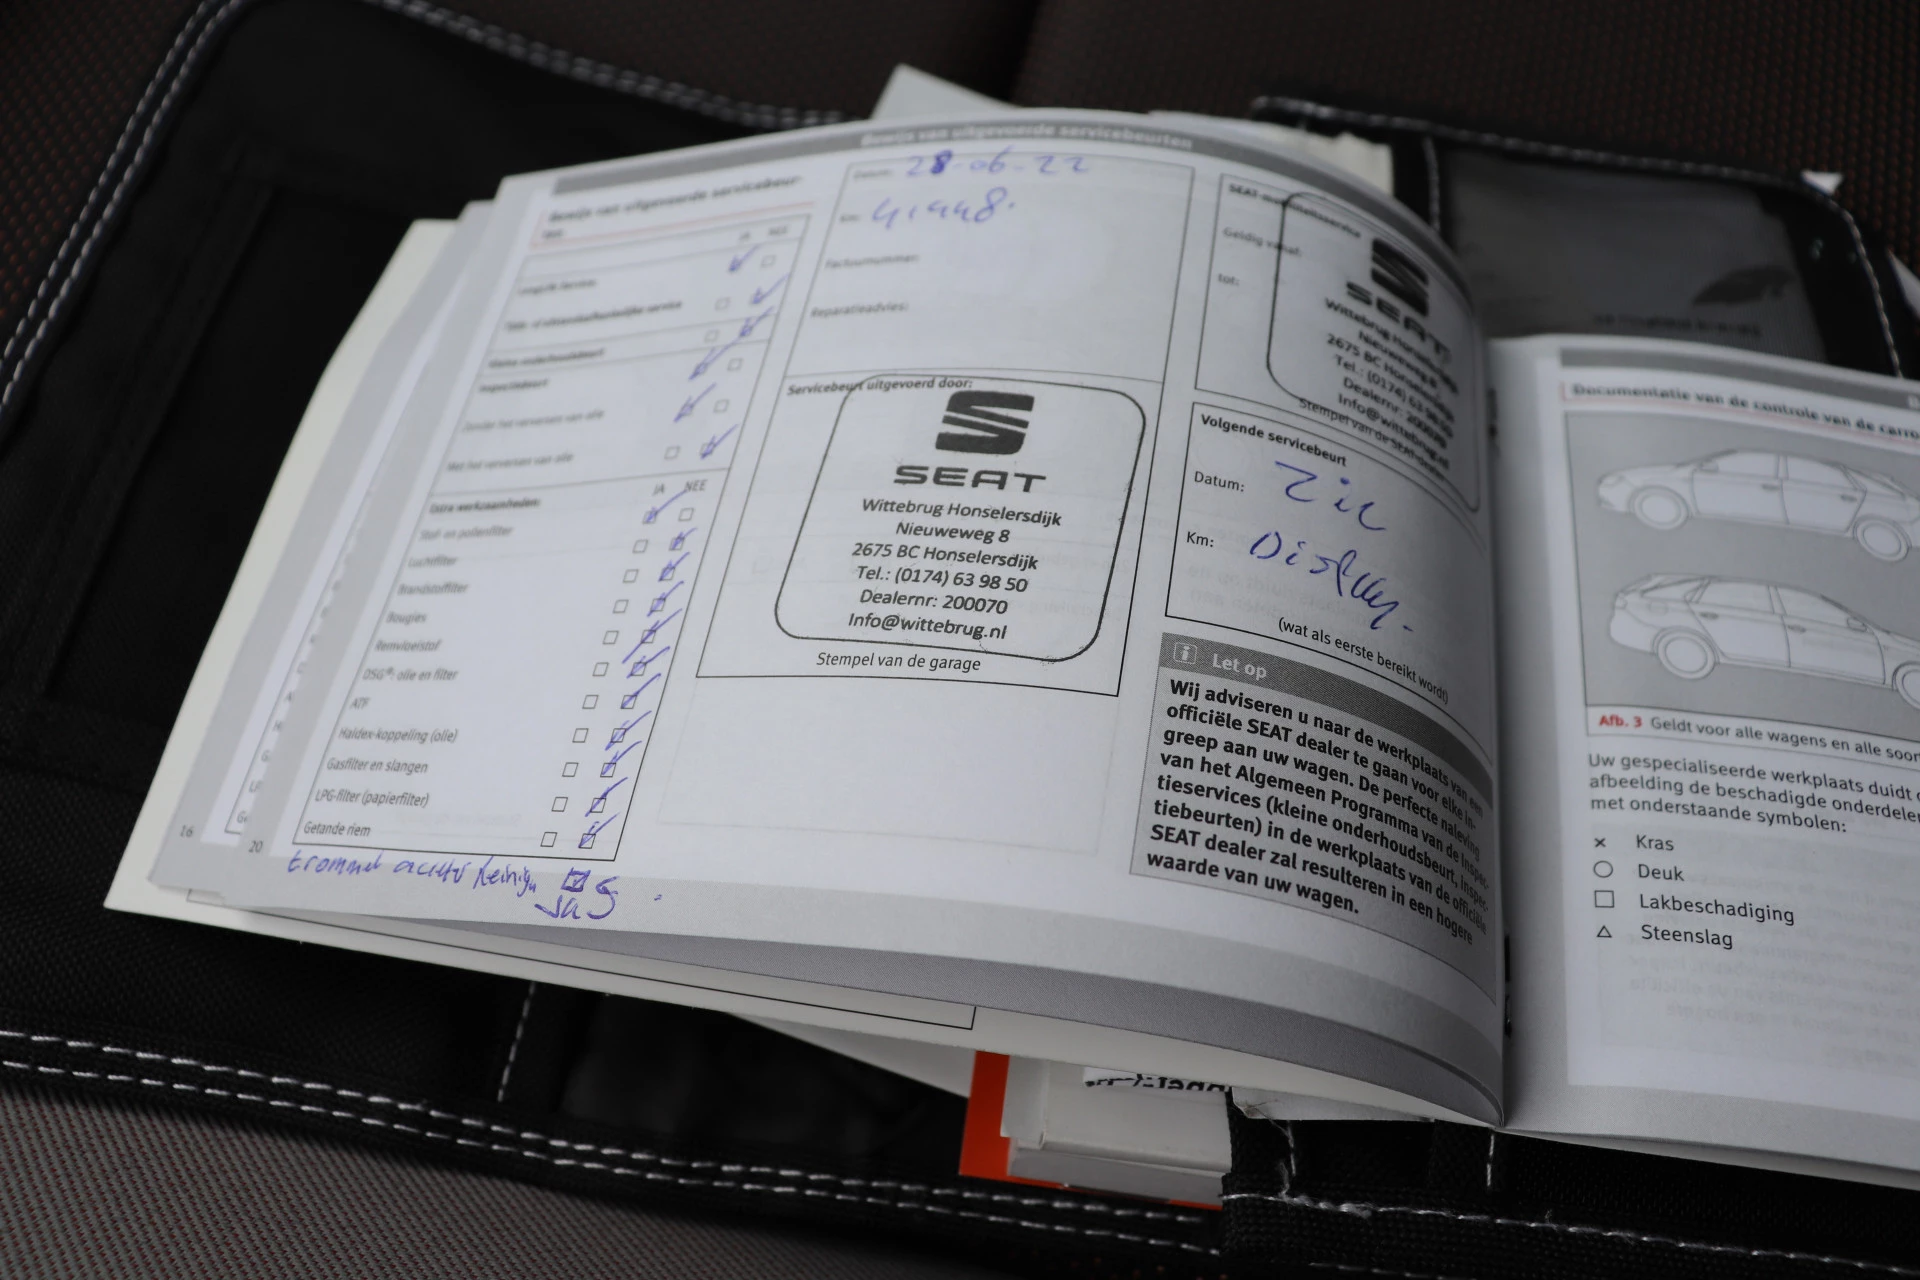 Bewijs van uitgevoerde servicebeurten
Bewijs van uitgevoerde servicebeur-
ten
JA NEE
Longlife Service
Tijds- of kilometerafhankelijke service
Kleine onderhoudsbeurt
Inspectiebeurt
Zonder het verversen van olie
Met het verversen van olie
Extra werkzaamheden:
JA NEE
Stof- en pollenfilter
Luchtfilter
Brandstoffilter
Bougies
Remvloeistof
DSG®: olie en filter
ATF
Haldex-koppeling (olie)
Gasfilter en slangen
LPG-filter (papierfilter)
Getande riem
trommel achter Reinig
16
20
Datum: 28-06-22
Km:
Factuurnummer:
Reparatieadvies:
Servicebeurt uitgevoerd door:
SEAT
Wittebrug Honselersdijk
Nieuweweg 8
2675 BC Honselersdijk
Tel.: (0174) 63 98 50
Dealernr: 200070
Info@wittebrug.nl
Stempel van de garage
SEAT-mobiliteitsservice
Geldig vanaf:
tot:
SEAT
Wittebrug Honselersdijk
Nieuweweg 8
2675 BC Honselersdijk
Tel.: (0174) 63 98 50
Dealernr: 200070
Info@wittebrug.nl
Stempel van de SEAT-dealer
Volgende servicebeurt
Datum: Zie
Km: Display.
(wat als eerste bereikt wordt)
Let op
Wij adviseren u naar de werkplaats van een
officiële SEAT dealer te gaan voor elke in-
greep aan uw wagen. De perfecte naleving
van het Algemeen Programma van de Inspec-
tieservices (kleine onderhoudsbeurt, inspec-
tiebeurten) in de werkplaats van de officiële
SEAT dealer zal resulteren in een hogere
waarde van uw wagen.
Documentatie van de controle van de carro
Afb. 3 Geldt voor alle wagens en alle soor
Uw gespecialiseerde werkplaats duidt
afbeelding de beschadigde onderdele
met onderstaande symbolen:
× Kras
○ Deuk
□ Lakbeschadiging
△ Steenslag